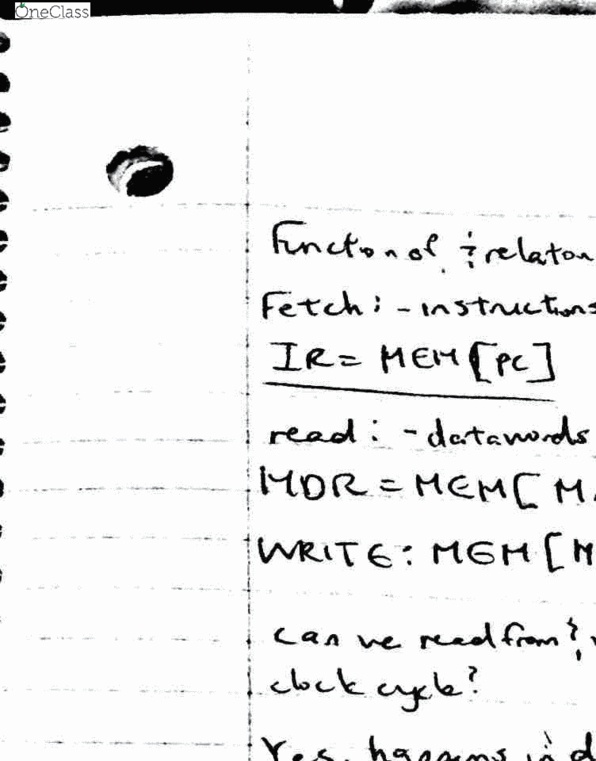 OneClass
Functional & relation
Fetch: - instructions
IR = MEM[PC]
read: - datawords
MDR = MEM[M
WRITE: MEM[M
can we read from &
clock cycle?
Yes, happens in d